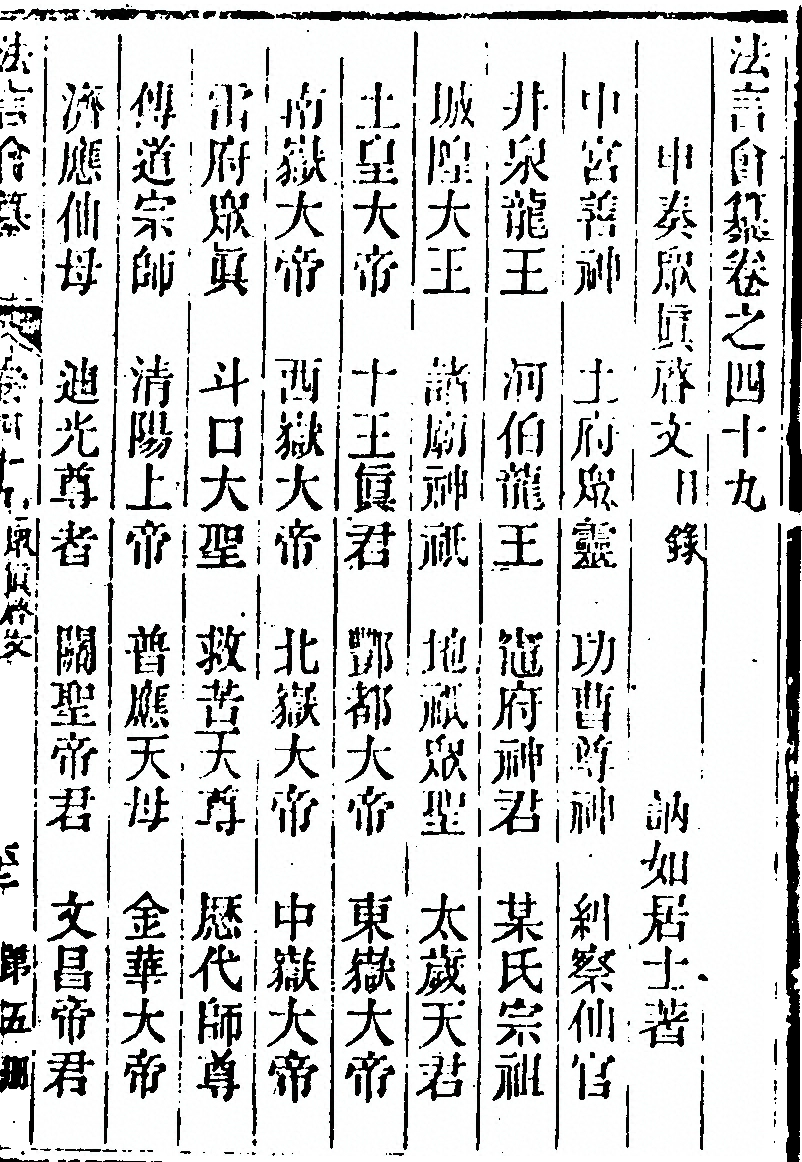 法言會纂卷之四十九
申奏眾眞啓文目錄
訥如居士著
中宮善神 土府眾靈 功曹尊神 糾察仙官
井泉龍王 河伯龍王 竈府神君 某氏宗祖
城隍大王 諸廟神祇 地祇眾聖 太歲天君
土皇大帝 十王眞君 酆都大帝 東嶽大帝
南嶽大帝 西嶽大帝 北嶽大帝 中嶽大帝
雷府眾眞 斗口大聖 救苦天尊 歷代師尊
傳道宗師 清陽上帝 普應天母 金華大帝
濟應仙母 迪光尊者 關聖帝君 文昌帝君
法言會纂 卷四十九 眾眞啓文 第五冊